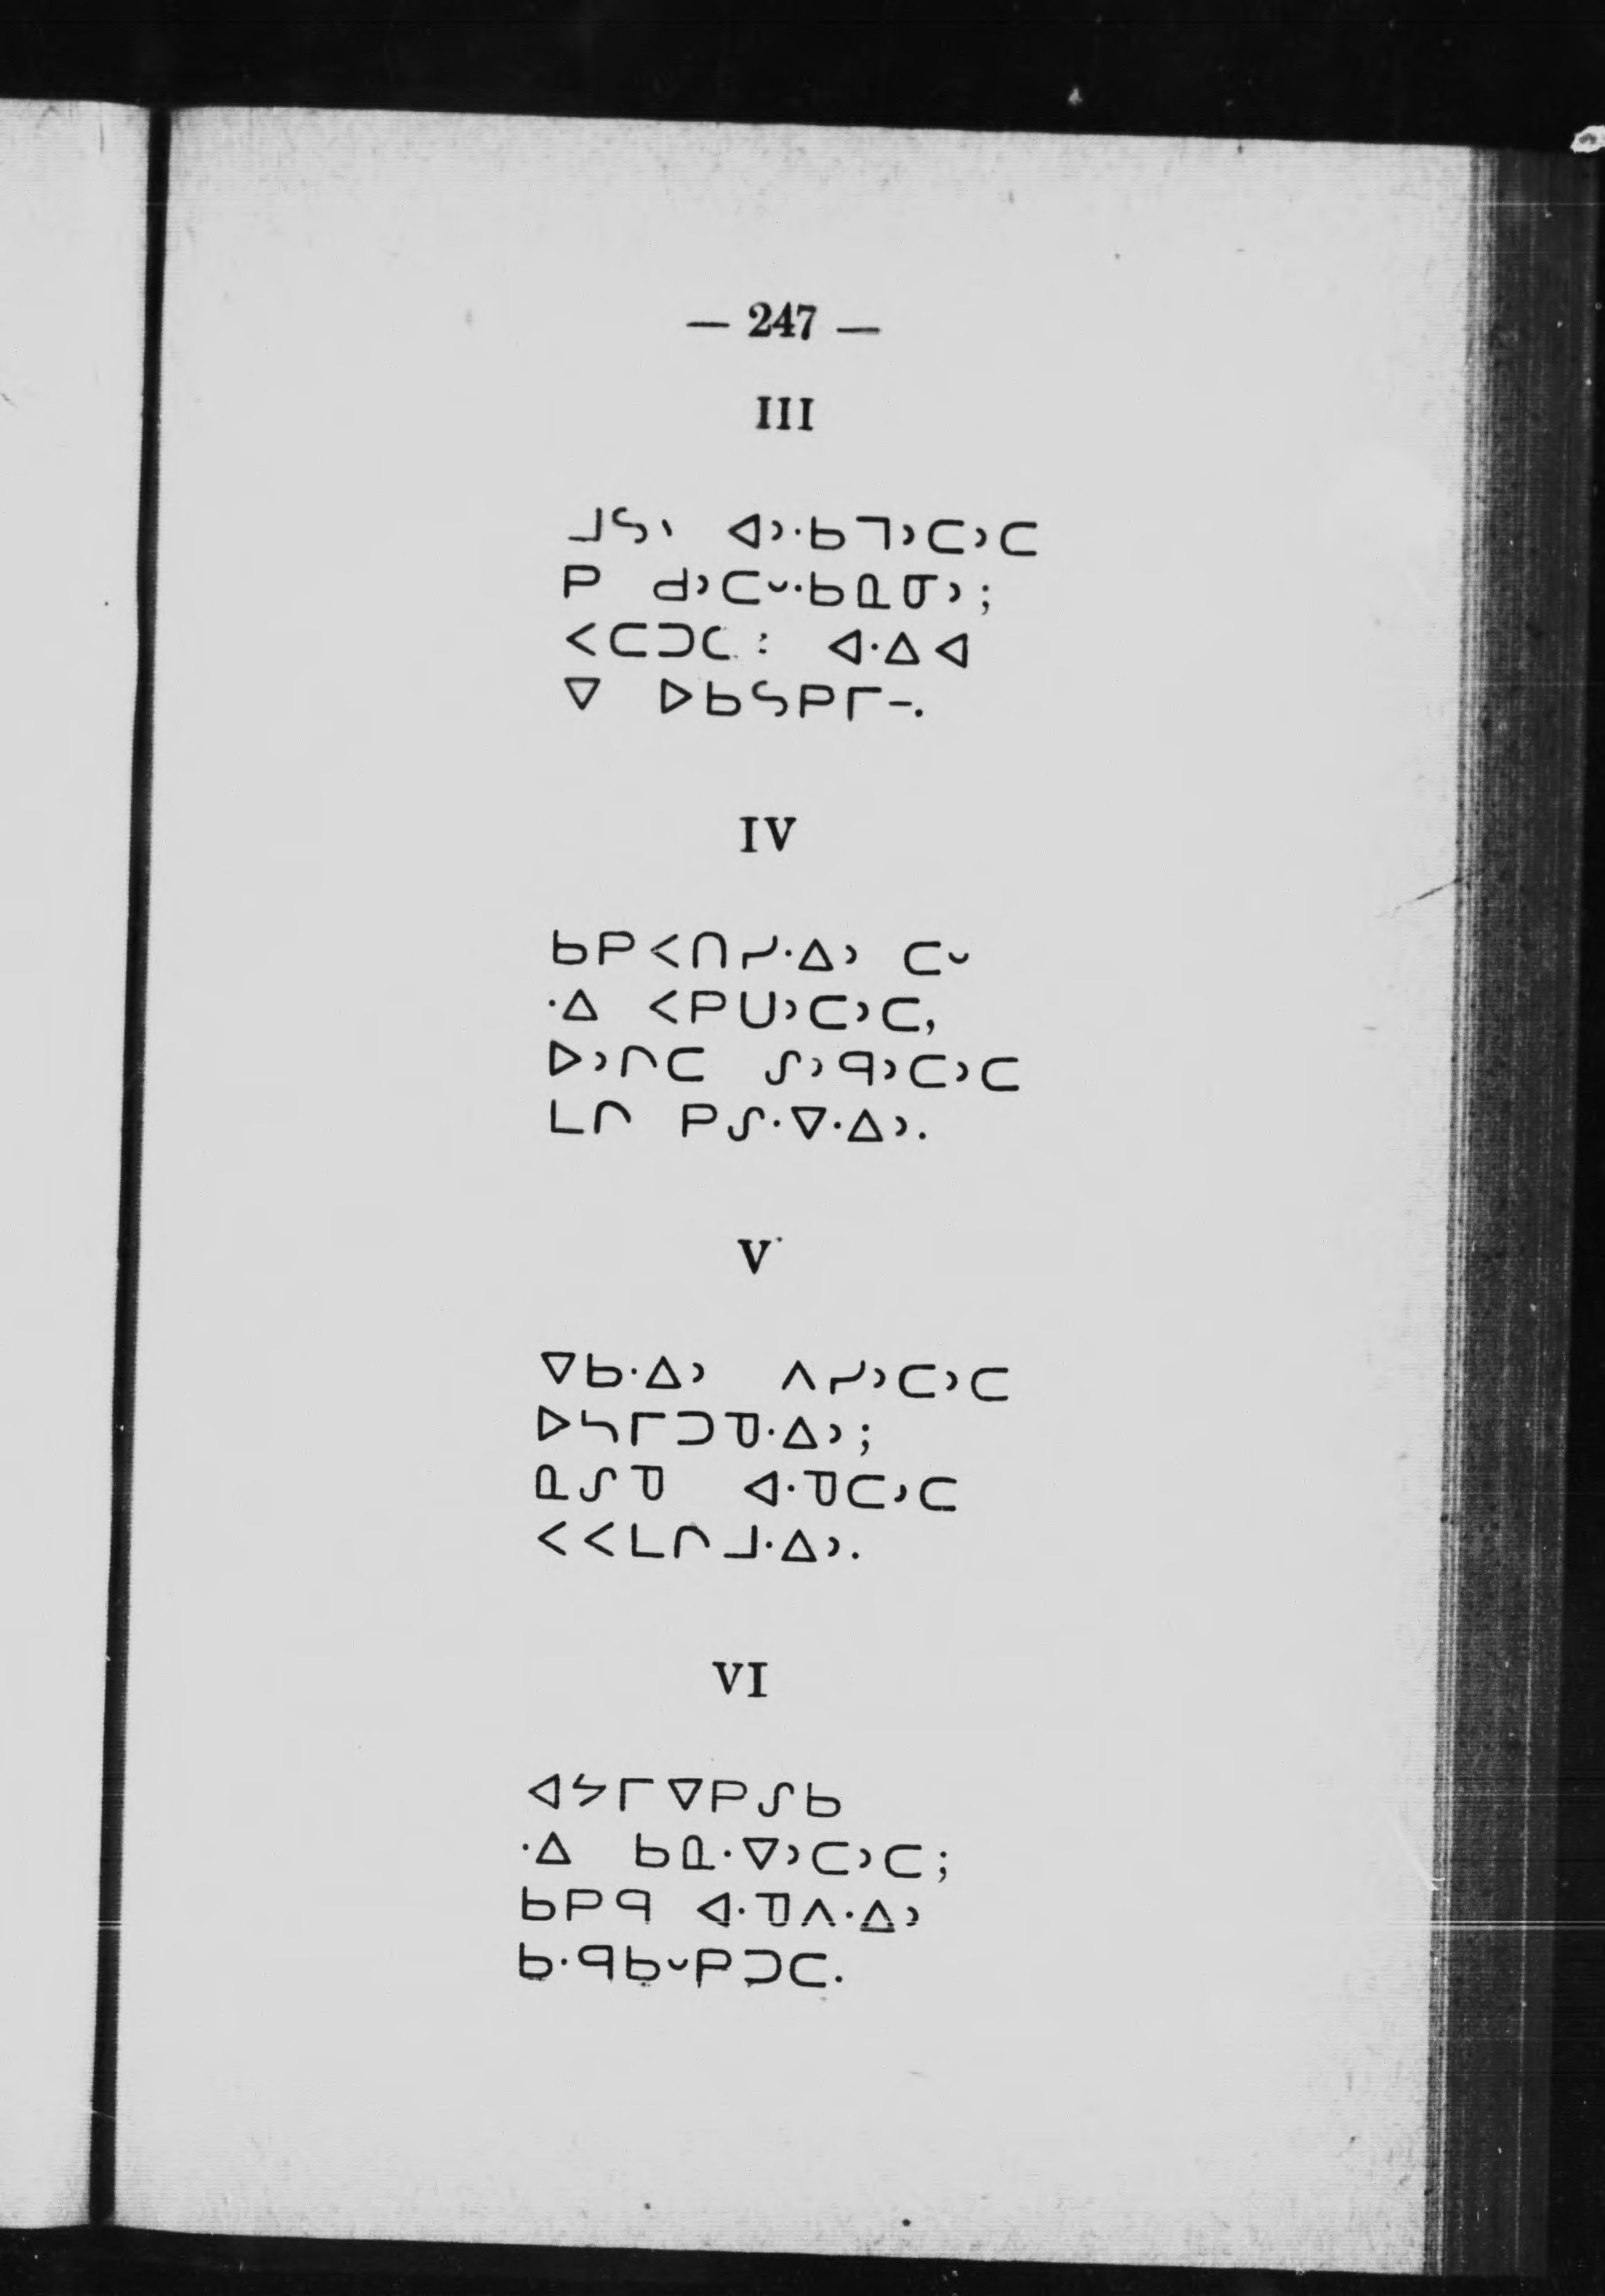 — 247 —
III
ᒧᔕᐠ ᐊᐣᐧᑲᒣᐣᑕᐣᑕ
ᑭ ᑯᐣᑕᐢᐧᑲᓇᓂᐣ ;
ᐸᑕᑐᑕ : ᐊᐧᐃᐊ
ᐁ ᐅᑲᔕᑭᒥᐨ.
IV
ᑲᑭᐸᑎᓯᐧᐃᐣ ᑕᐢ
ᐧᐃ ᐸᑭᑌᐣᑕᐣᑕ,
ᐅᐣᒋᑕ ᔑᐣᑫᐣᑕᐣᑕ
ᒪᒋ ᑭᔑᐧᐁᐧᐃᐣ.
V
ᐁᑲᐧᐃᐣ ᐱᓯᐣᑕᐣᑕ
ᐅᓴᒥᑐᓀᐧᐃᐣ ;
ᓇᔑᓀ ᐊᐧᓀᑕᐣᑕ
ᐸᐸᒪᒋᒧᐧᐃᐣ.
VI
ᐊᔭᒥᐁᑭᔑᑲ
ᐧᐃ ᑲᓇᐧᐁᐣᑕᐣᑕ ;
ᑲᑭᑫ ᐊᐧᓀᐱᐧᐃᐣ
ᑲᐧᑫᑲᐢᑭᑐᑕ.